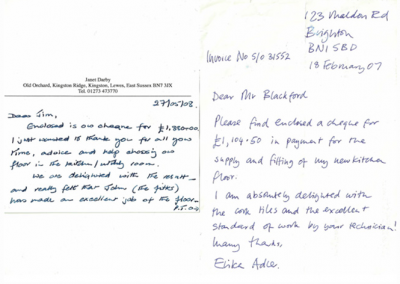 Janet Darby
Old Orchard, Kingston Ridge, Kingston, Lewes, East Sussex BN7 3JX
Tel. 01273 473770
27/05/03.
Dear Jim,
Enclosed is our cheque for
I just wanted to thank you for all your
time, advice and help choosing our
floor in the kitchen/utility room.
We are delighted with the result
and really felt that John (the fitter)
has made an excellent job of the floor
P.T.O.
123 Maldon Rd
Brighton
BN1 5BD
Invoice No S/O 31552
18 February, 07
Dear Mr Blackford
Please find enclosed a cheque for
£1,104.50 in payment for the
supply and fitting of my new kitchen
floor.
I am absolutely delighted with
the cork tiles and the excellent
standard of work by your technician!
Many thanks,
Erika Adler.